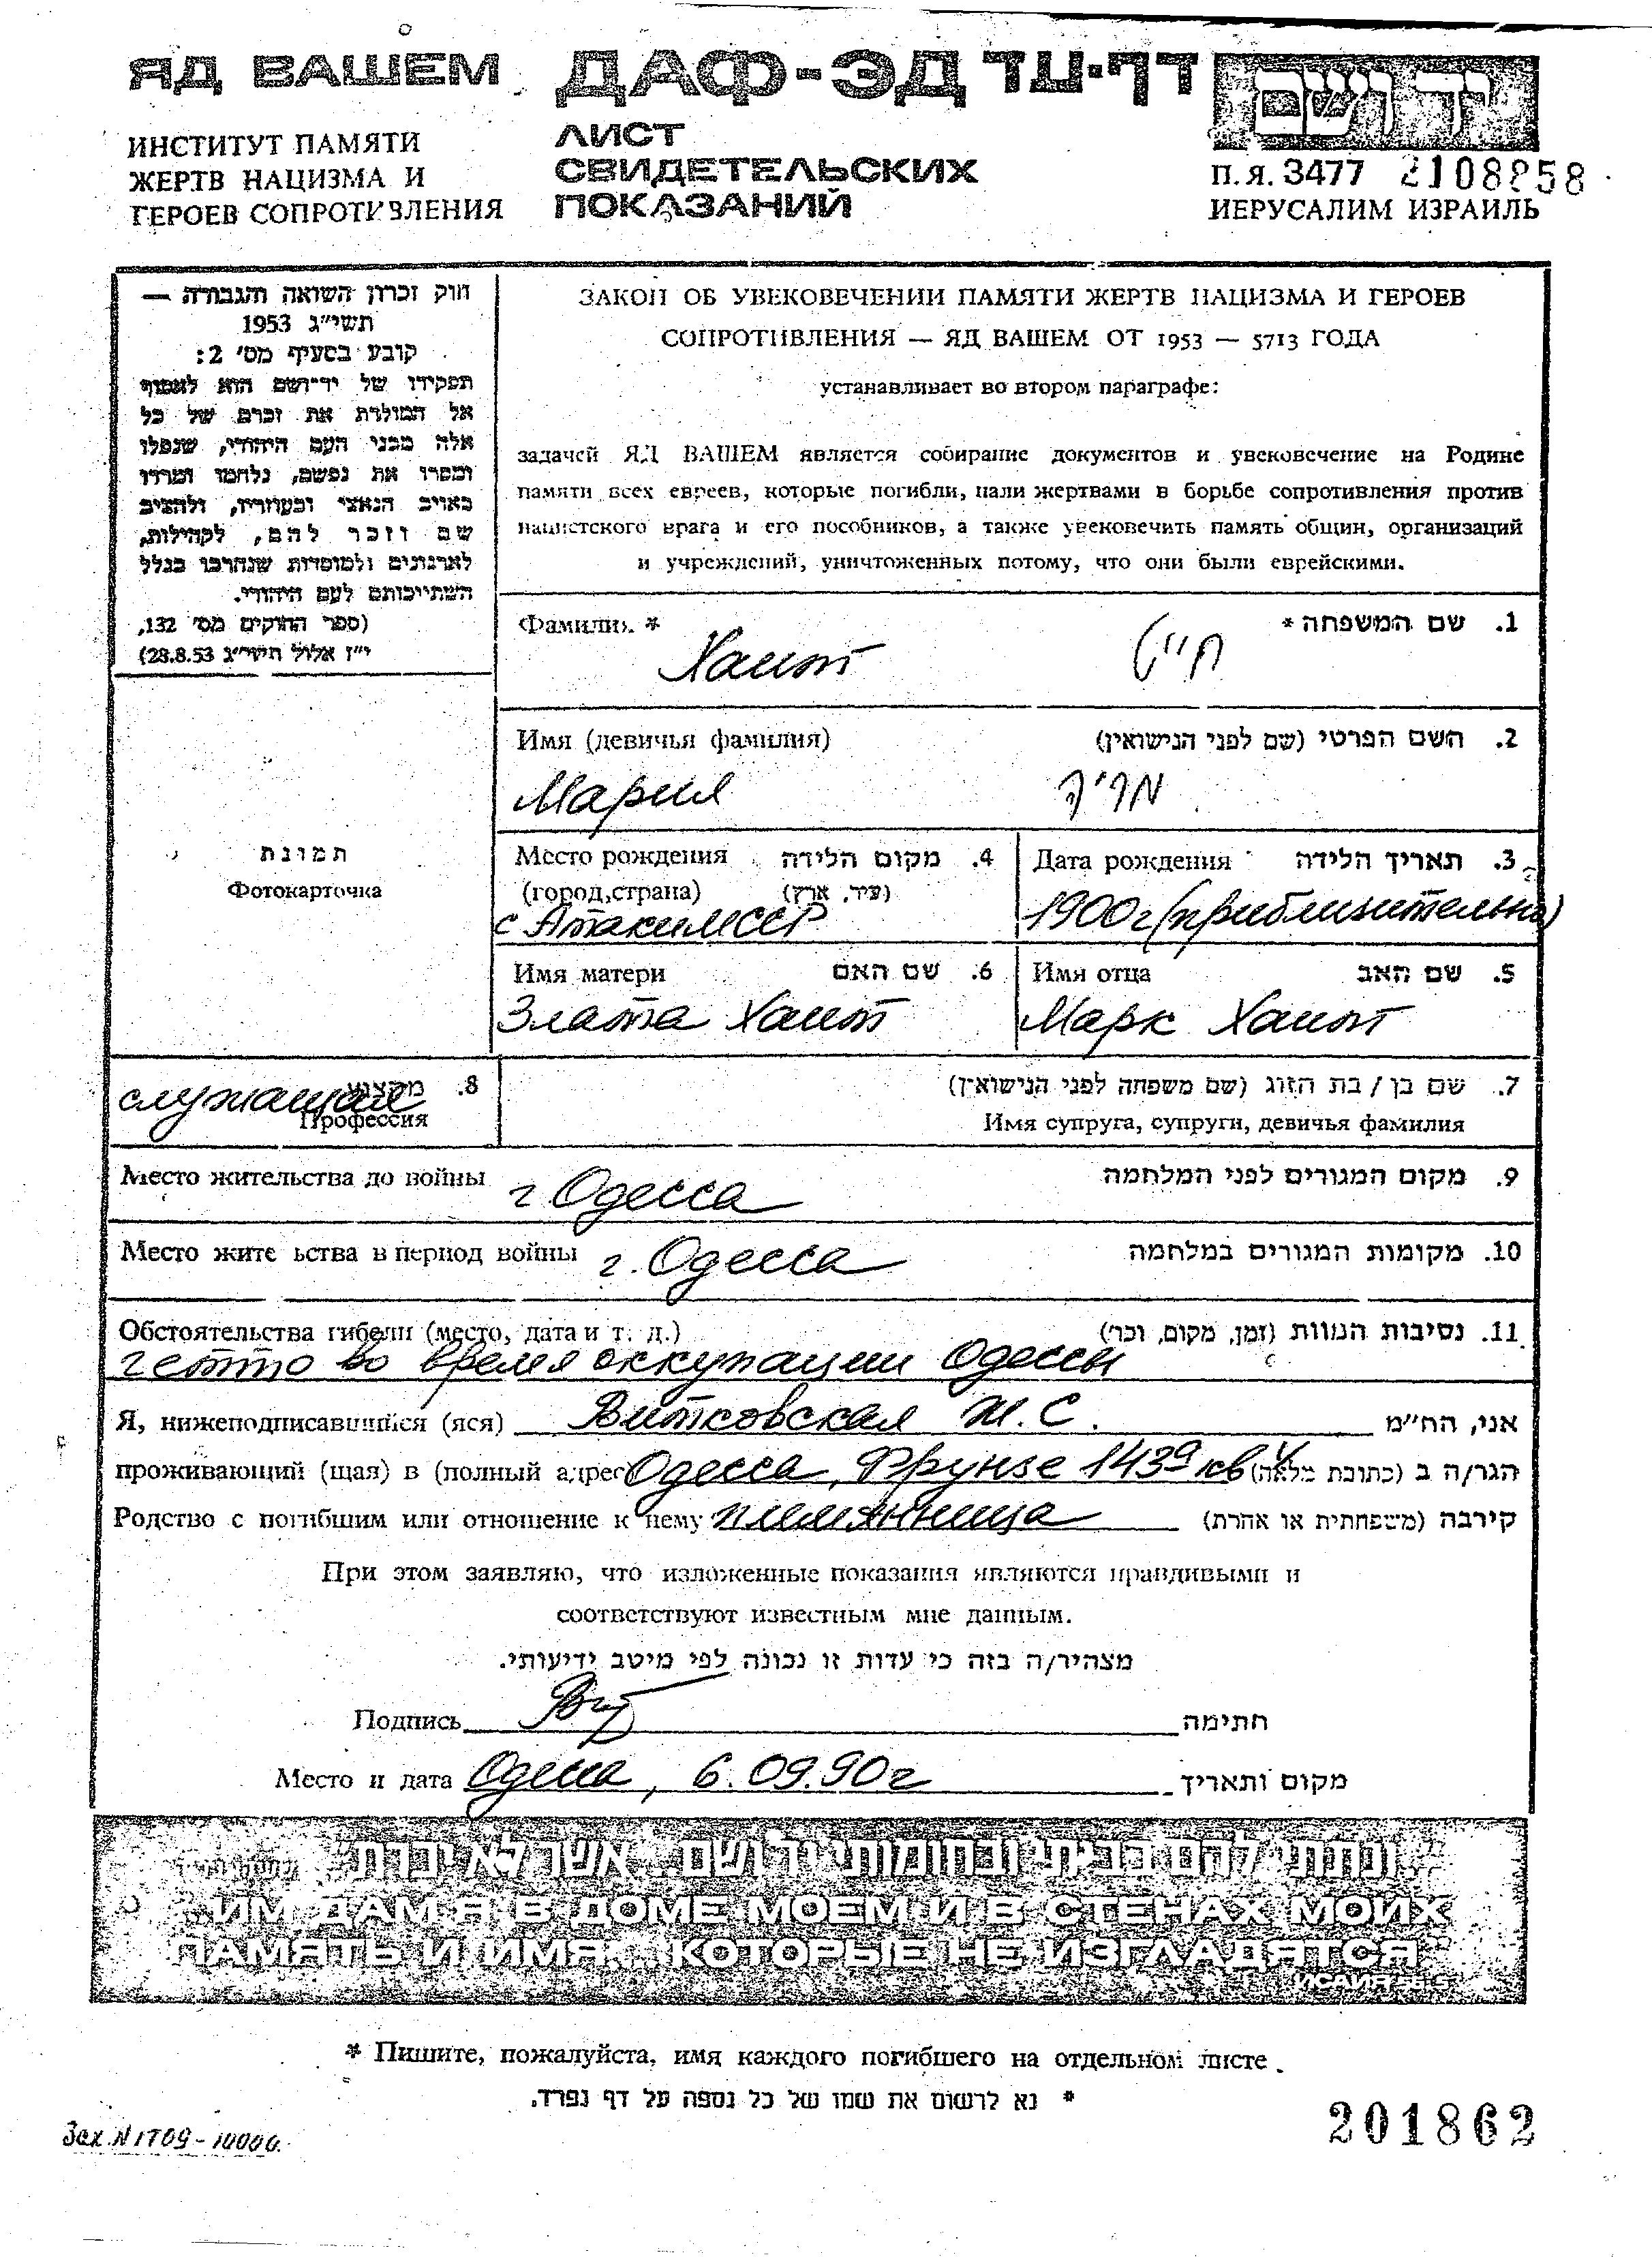 ЯД ВАШЕМ
ДАФ-ЭД דף-עד
יד ושם
ИНСТИТУТ ПАМЯТИ
ЖЕРТВ НАЦИЗМА И
ГЕРОЕВ СОПРОТИВЛЕНИЯ
ЛИСТ
СВИДЕТЕЛЬСКИХ
ПОКАЗАНИЙ
П.Я. 3477
ИЕРУСАЛИМ ИЗРАИЛЬ
חוק זכרון השואה והגבורה —
תשי״ג 1953
קובע בסעיף מס׳ 2:
תפקידו של יד־ושם הוא לאסוף
אל המולדת את זכרם של כל
אלה מבני העם היהודי, שנפלו
ומסרו את נפשם, נלחמו ומרדו
באויב הנאצי ובעוזריו, ולהציב
שם וזכר להם, לקהילות,
לארגונים ולמוסדות שנחרבו בגלל
השתייכותם לעם היהודי.
(ספר החוקים מס׳ 132,
י״ז אלול תשי״ג 28.8.53)
ЗАКОН ОБ УВЕКОВЕЧЕНИИ ПАМЯТИ ЖЕРТВ НАЦИЗМА И ГЕРОЕВ
СОПРОТИВЛЕНИЯ — ЯД ВАШЕМ ОТ 1953 — 5713 ГОДА
устанавливает во втором параграфе:
задачей ЯД ВАШЕМ является собирание документов и увековечение на Родине
памяти всех евреев, которые погибли, пали жертвами в борьбе сопротивления против
нацистского врага и его пособников, а также увековечить память общин, организаций
и учреждений, уничтоженных потому, что они были еврейскими.
Фамилия * 1. שם המשפחה *
Хаит חייט
Имя (девичья фамилия) 2. השם הפרטי (שם לפני הנישואין)
Мария מריה
תמונת
Фотокарточка
Место рождения 4. מקום הלידה
(город,страна) (עיר, ארץ)
с Атаки МССР
Дата рождения 3. תאריך הלידה
1900г (приблизительно)
Имя матери 6. שם האם
Злата Хаит
Имя отца 5. שם האב
Марк Хаит
8. מקצוע
служащая
Профессия
7. שם בן / בת הזוג (שם משפחה לפני הנישואין)
Имя супруга, супруги, девичья фамилия
Место жительства до войны г Одесса 9. מקום המגורים לפני המלחמה
Место жите ьства в период войны г. Одесса 10. מקומות המגורים במלחמה
Обстоятельства гибели (место, дата и т. д.) 11. נסיבות המוות (זמן, מקום, וכו׳)
гетто во время оккупации Одессы
Я, нижеподписавшийся (яся) Витковская И. С. אני, הח״מ
проживающий (щая) в (полный адрес Одесса, Фрунзе 143 кв 4 הגר/ה ב (כתובת מלאה)
Родство с погибшим или отношение к нему племянница קירבה (משפחתית או אחרת)
При этом заявляю, что изложенные показания являются правдивыми и
соответствуют известным мне данным.
מצהיר/ה בזה כי עדות זו נכונה לפי מיטב ידיעותי.
Подпись Вит חתימה
Место и дата Одесса, 6.09.90г מקום ותאריך
ונתתי להם בביתי ובחומותי יד ושם... אשר לא יכרת
ИМ ДАМ Я В ДОМЕ МОЕМ И В СТЕНАХ МОИХ
ПАМЯТЬ И ИМЯ... КОТОРЫЕ НЕ ИЗГЛАДЯТСЯ."
ИСАИЯ 56,5
* Пишите, пожалуйста, имя каждого погибшего на отдельном листе.
* נא לרשום את שמו של כל נספה על דף נפרד.
Зак. N 1709-10000.
201862